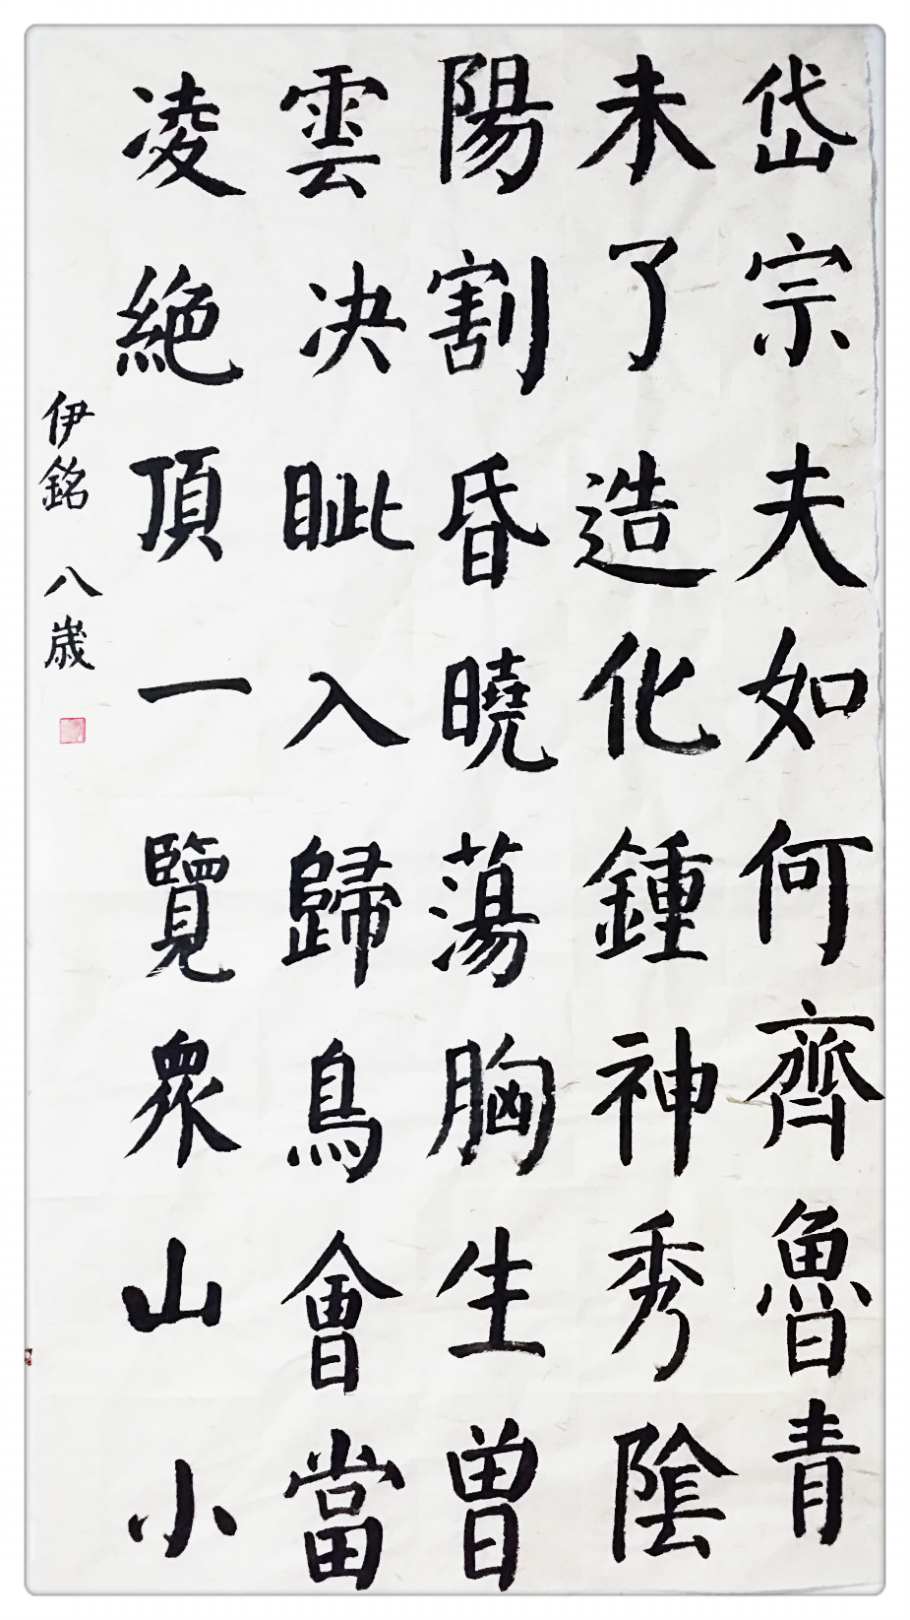 岱宗夫如何齊魯青
未了造化鍾神秀陰
陽割昏曉蕩胸生曽
雲决眦入歸鳥會當
凌絕頂一覽眾山小
伊銘 八歲